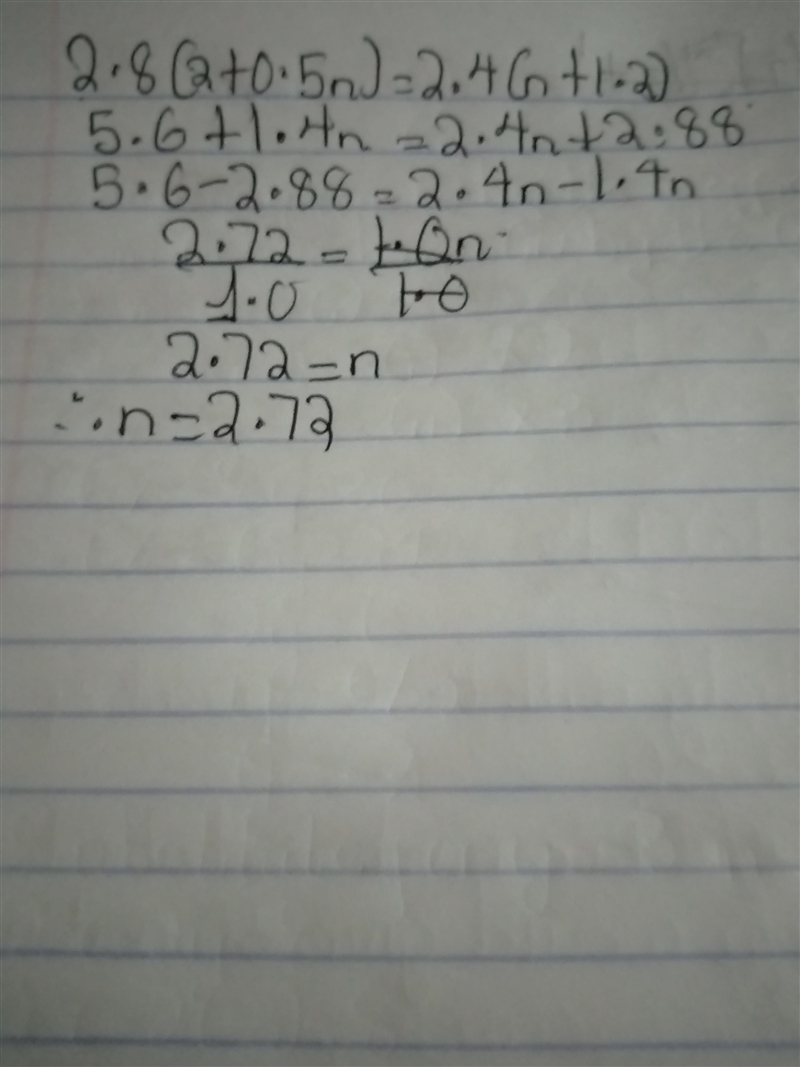 2.8(2+0.5n)=2.4(n+1.2)
5.6+1.4n=2.4n+2.88
5.6-2.88=2.4n-1.4n
2.72 = 1.0n
1.0 1.0
2.72=n
∴n=2.72